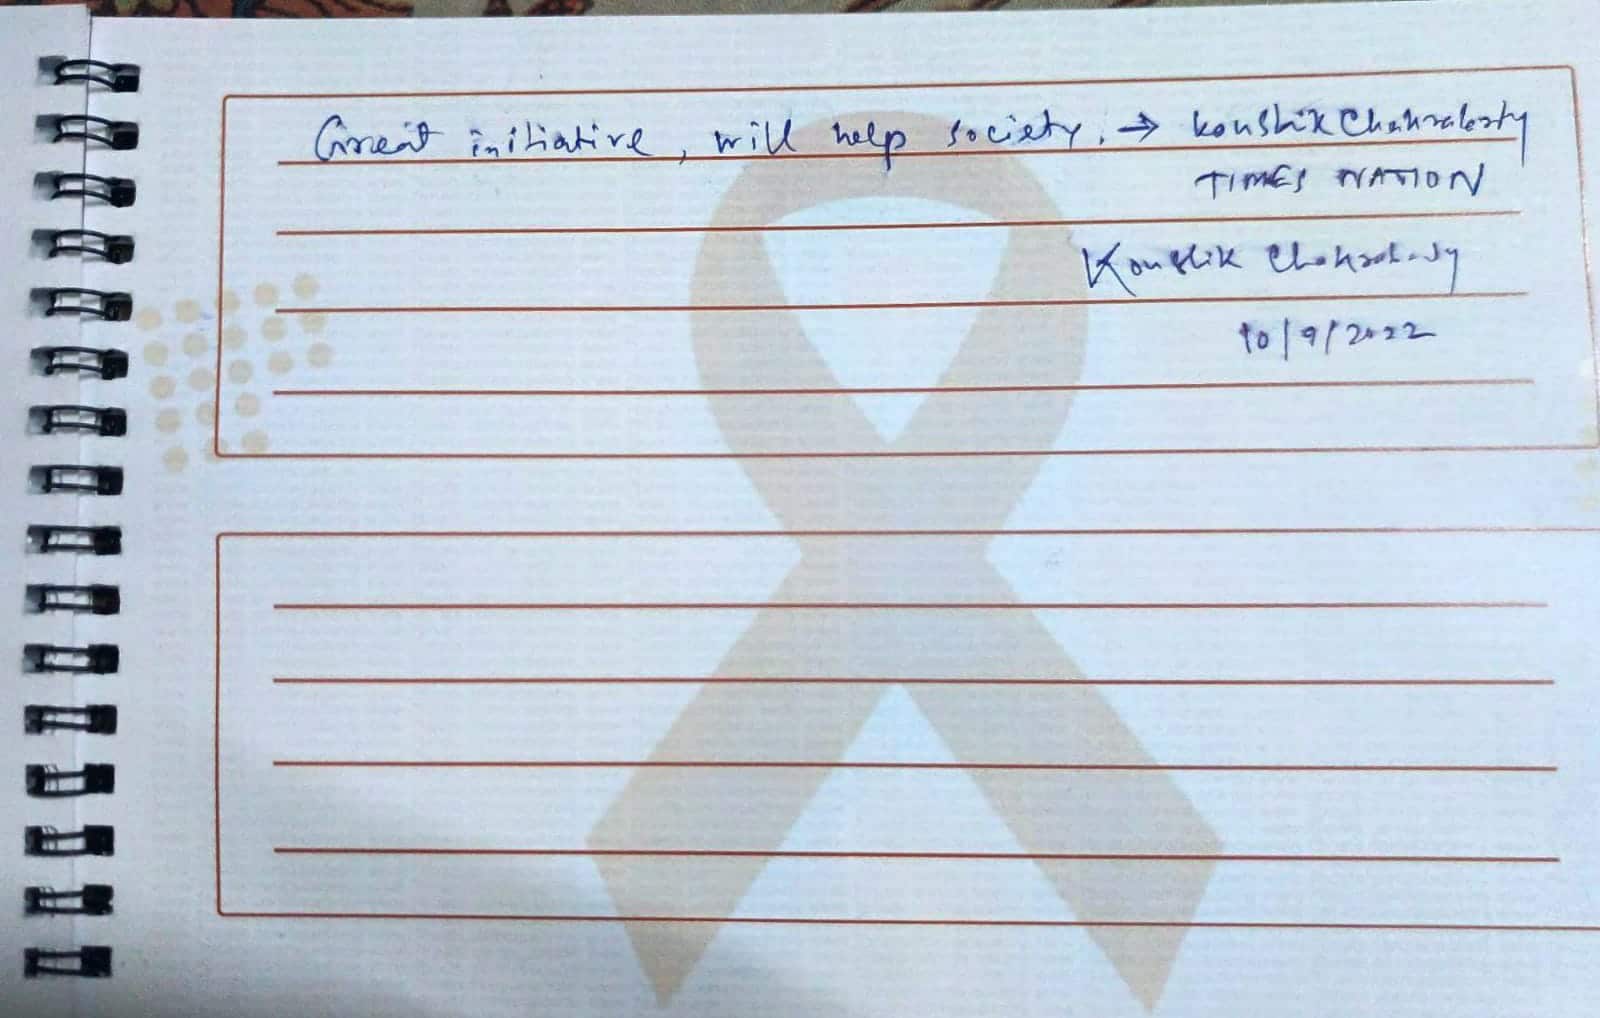 Great initiative, will help society. → Koushik Chakraborty
TIMES NATION
Koushik Chakraborty
10/9/2022